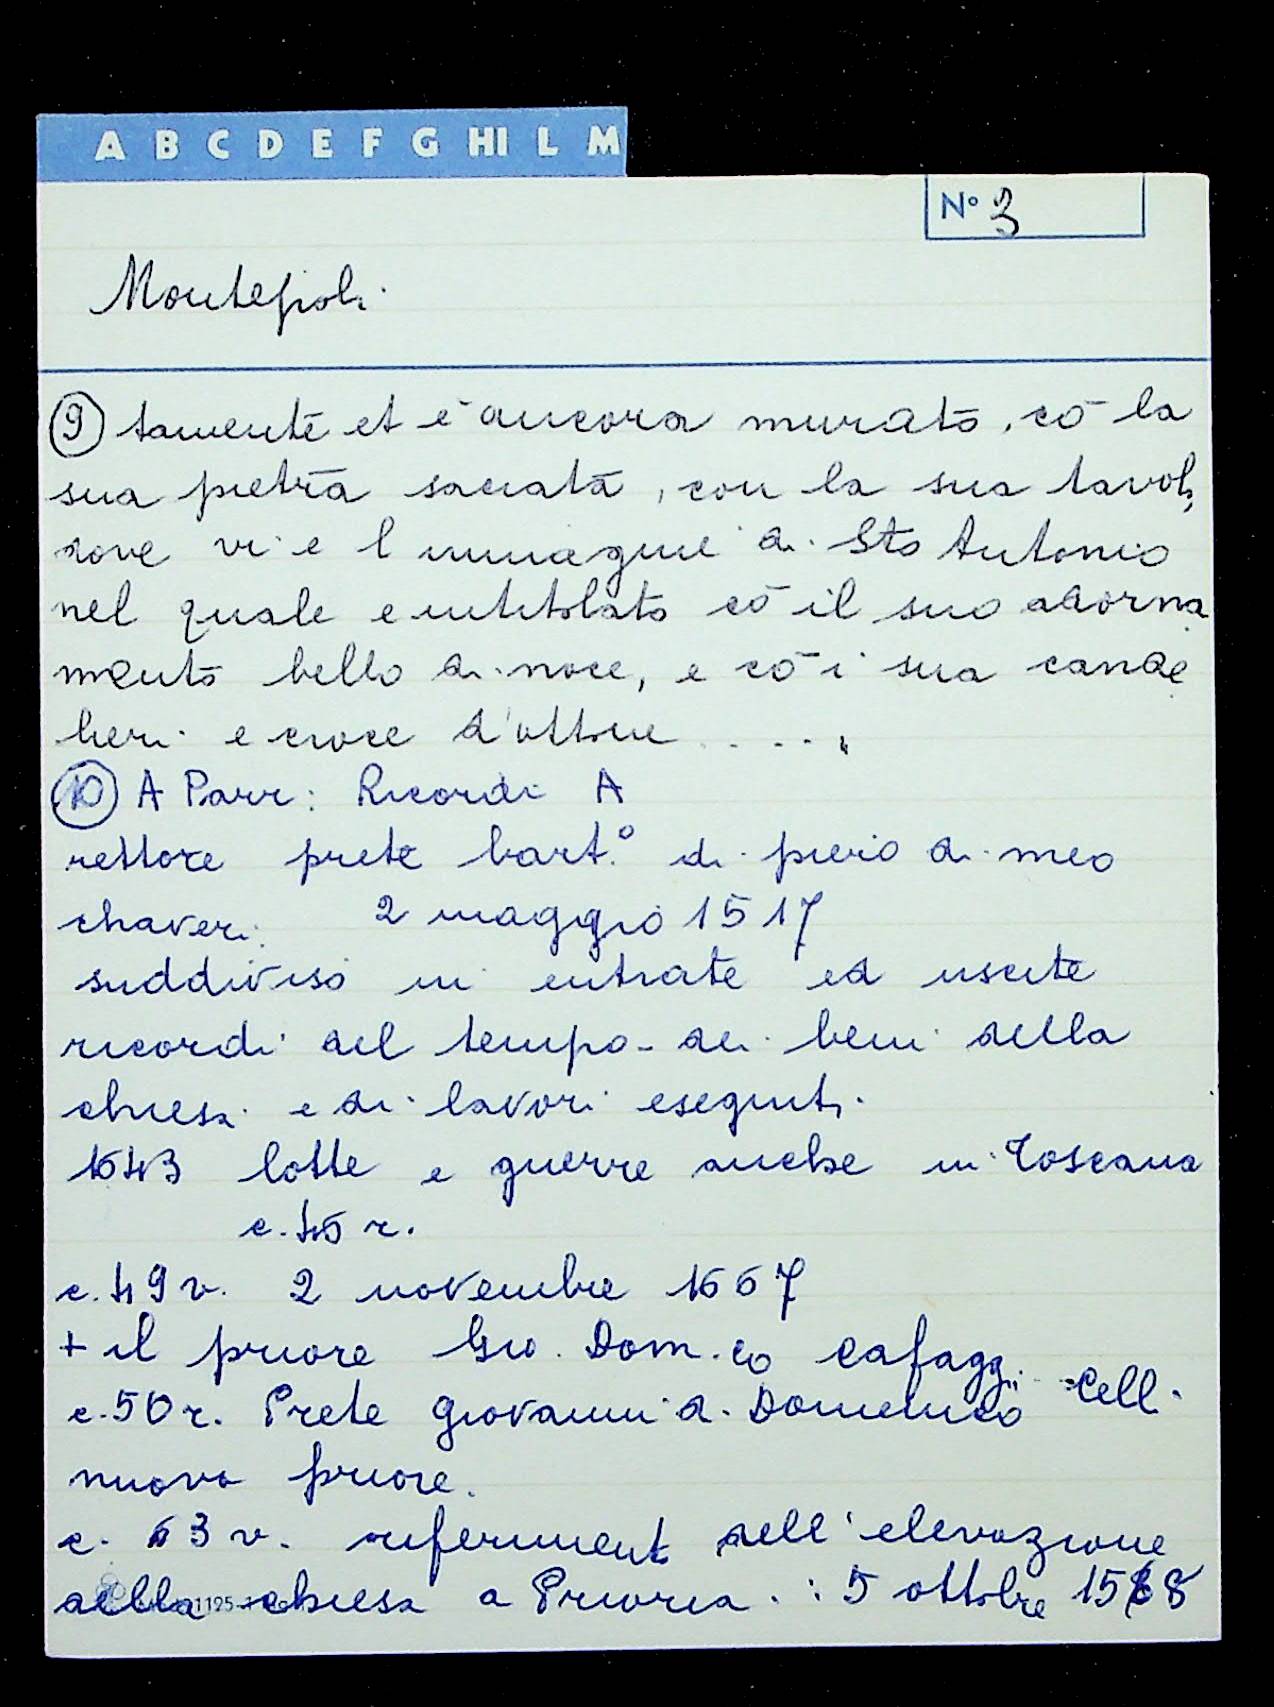 A B C D E F G HI L M
N° 3
Montefioli
⑨ tamente et è ancora murato, cō la
sua pietra sacrata, con la sua tavola,
dove vi e l'immagine di Sto Antonio
nel quale e intitolato cō il suo adorna
mento bello di noce, e cō i sua cande
lieri e croce d'ottone .....
⑩ A Parr: Ricordi A
rettore prete bart.° di piero di meo
chaveri. 2 maggio 1517
suddiviso in entrate ed uscite
ricordi del tempo - dei beni della
chiesa e di lavori eseguiti.
1643 lotte e guerre anche in Toscana
c. 45 r.
c. 49 v. 2 novembre 1667
+ il priore Gio. Dom.co Cafaggi
c. 50 r. Prete Giovanni di Domenico Celli
nuovo priore.
c. 63 v. riferimento dell'elevazione
della chiesa a Prioria. : 5 ottobre 15